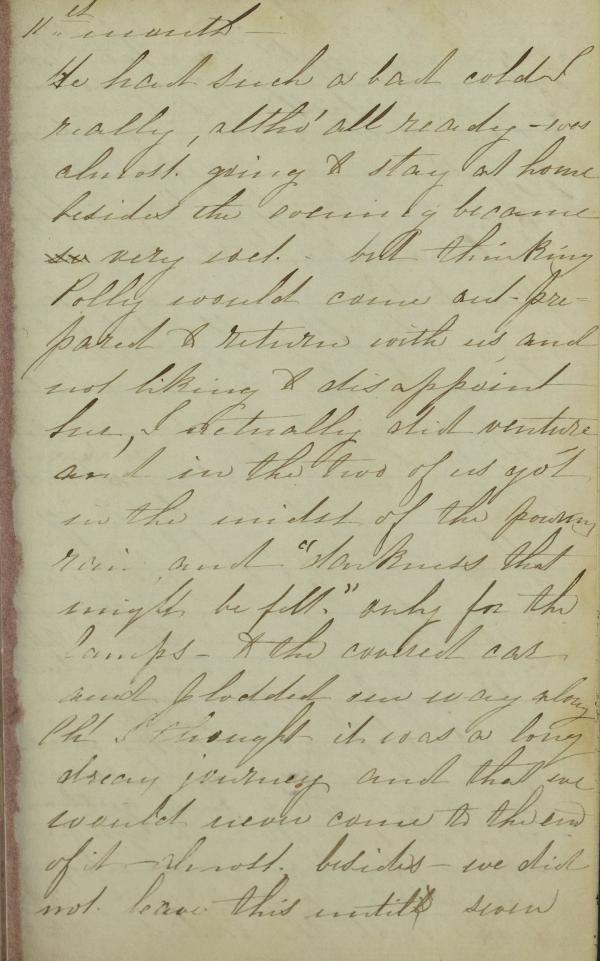 11th month —
He had such a bad cold I
really, altho' all ready - was
almost going to stay at home
besides the evening became
so very wet. - but thinking
Polly would come out pre=
pared to return with us and
not liking to disappoint
her, I actually did venture
and in the two of us got
in the midst of the pouring
rain and "darkness that
might be felt." only for the
lamps - to the covered car
and plodded our way along
Oh! I thought it was a long
dreary journey and that we
would never come to the end
of it - almost. besides - we did
not leave this until seven